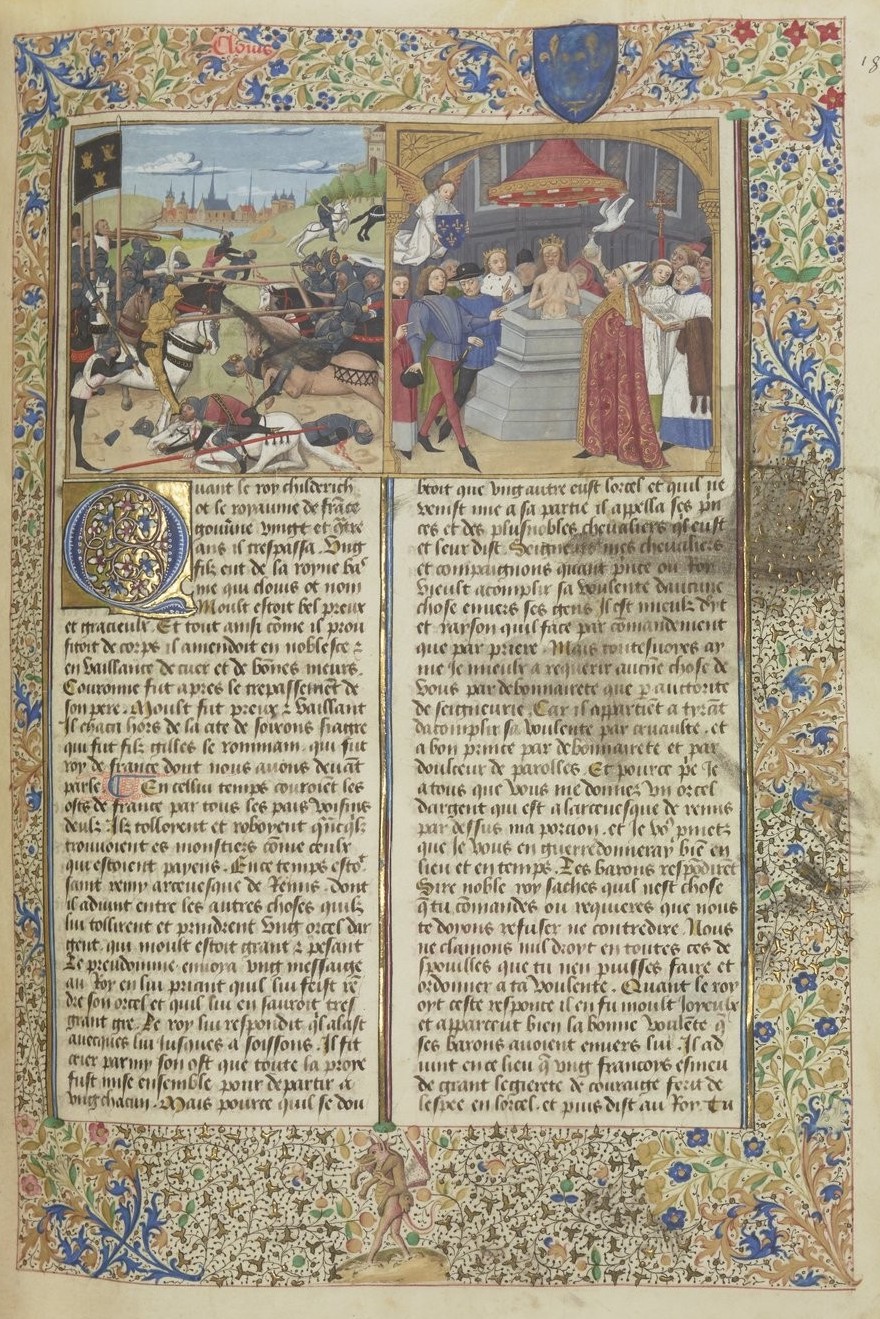 Clouis
18
Quant le roy childerich
ot le royaume de frãce
gouũne vingt et q̃tre
ans il trespassa. Vng
filz eut de la royne ba
me qui clouis ot nom
Moult estoit bel preux
et gracieulx. Et tout ainsi cõme il prou
fitoit de corps il amendoit en noblesce ⁊
en vaillance de cuer et de bõnes meurs.
Couronne fut apres le trepassemẽt de
son pere. Moult fut preux ⁊ vaillant
Il chaca hors de la cite de soixons siagre
qui fut filz gilles le rommain. qui fut
roy de france dont nous auons deuãt
parle. En cellui temps couroiet les
osts de france par tous les pais voisins
deulx. Ilz tolloient et roboyent
trouuoient es monstiers cõme ceulx
qui estoient payens. En ce temps
saint remy arceuesque de Reins. dont
il aduint entre les autres choses quilz
lui tollirent et prindrent vng orcel dar
gent. qui moult estoit grant ⁊ pesant
Le preudomme enuoya vng messaige
au Roy en lui priant quil lui feist rẽ
dre son orcel et quil lui en sauroit tres
grant gre. Le roy lui respondit q̃l alast
auecques lui iusques a soissons. Il fit
crier parmy son ost que toute la proye
fust mise ensemble pour departir a
vng chacun. Mais pource quil se dou
btoit que vng autre eust lorcel et quil ne
venist mie a sa partie il appella ses prĩ
ces et des plus nobles cheualiers q̃l eust
et leur dist. Seigneurs mes cheualiers
et compaignons quant price ou Roy
vieult acomplir sa voulente daucune
chose enuers ses gens Il est mieulx dyt
et rayson quil face par comandement
que par priere. Mais toutesuoyes ay
me Ie mieulx a requerir aucũe chose de
vous par debonnairete que p auctorite
de seigneurie. Car il appartiẽt a tyrãt
dacomplir sa voulente par cruaulte. et
a bon prince par debonnairete et par
doulceur de parolles. Et pource Ie
a tous que vous me donnez vn orcel
dargent qui est a larceuesque de reins
par dessus ma porcion. et Ie
que Ie vous en guerredonneray biẽ en
lieu et en temps. Les barons respõdiret
Sire noble roy saches quil nest chose
q̃ tu cõmandes ou requieres que nous
te doyons refuser ne contredire. Nous
ne clamons nul droyt en toutes ces de
spouilles que tu nen puisses faire et
ordonner a ta voulente. Quant le roy
oyt ceste responce il en fu moult Ioyeulx
et apparceut bien la bonne voulẽte q̃
ses barons auoient enuers lui. Il ad
uint en ce lieu q̃ vng francoys esmeu
de grant legierete de couraige ferit de
lespee en lorcel. et puis dist au Roy. Tu